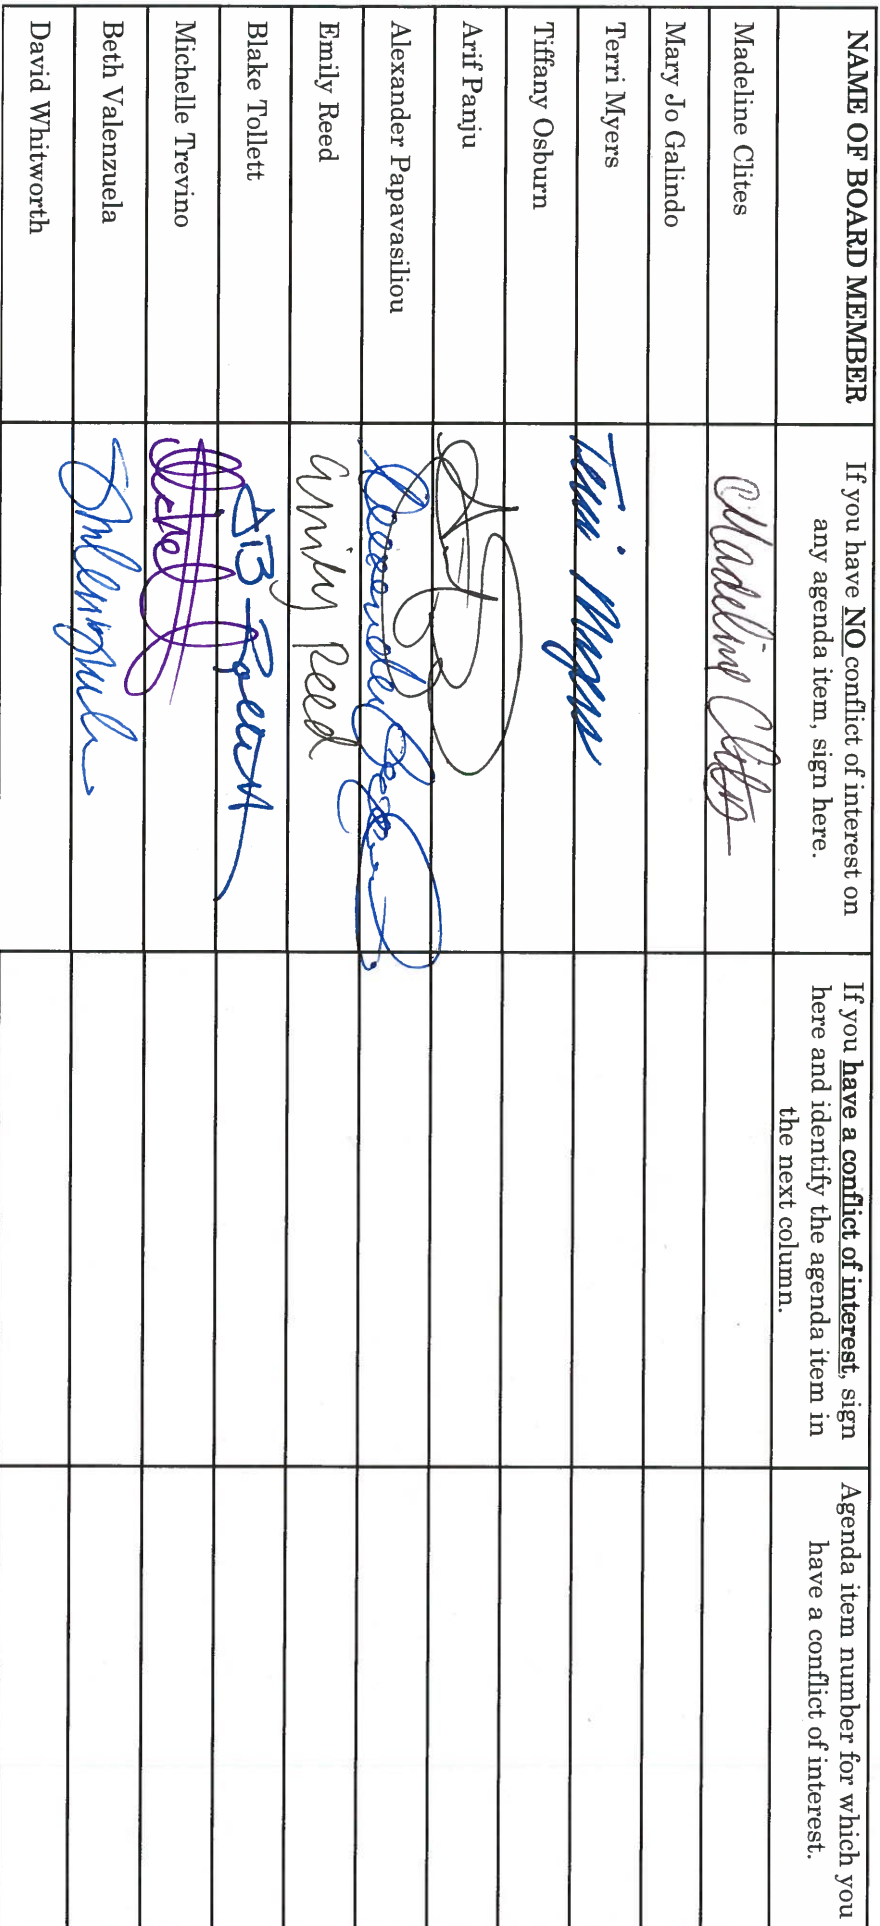 NAME OF BOARD MEMBER
If you have NO conflict of interest on
any agenda item, sign here.
If you have a conflict of interest, sign
here and identify the agenda item in
the next column.
Agenda item number for which you
have a conflict of interest.
Madeline Clites
Madeline Clites
Mary Jo Galindo
Terri Myers
Terri Myers
Tiffany Osburn
Arif Panju
Alexander Papavasiliou
Alexander
Emily Reed
Emily Reed
Blake Tollett
Michelle Trevino
Beth Valenzuela
David Whitworth